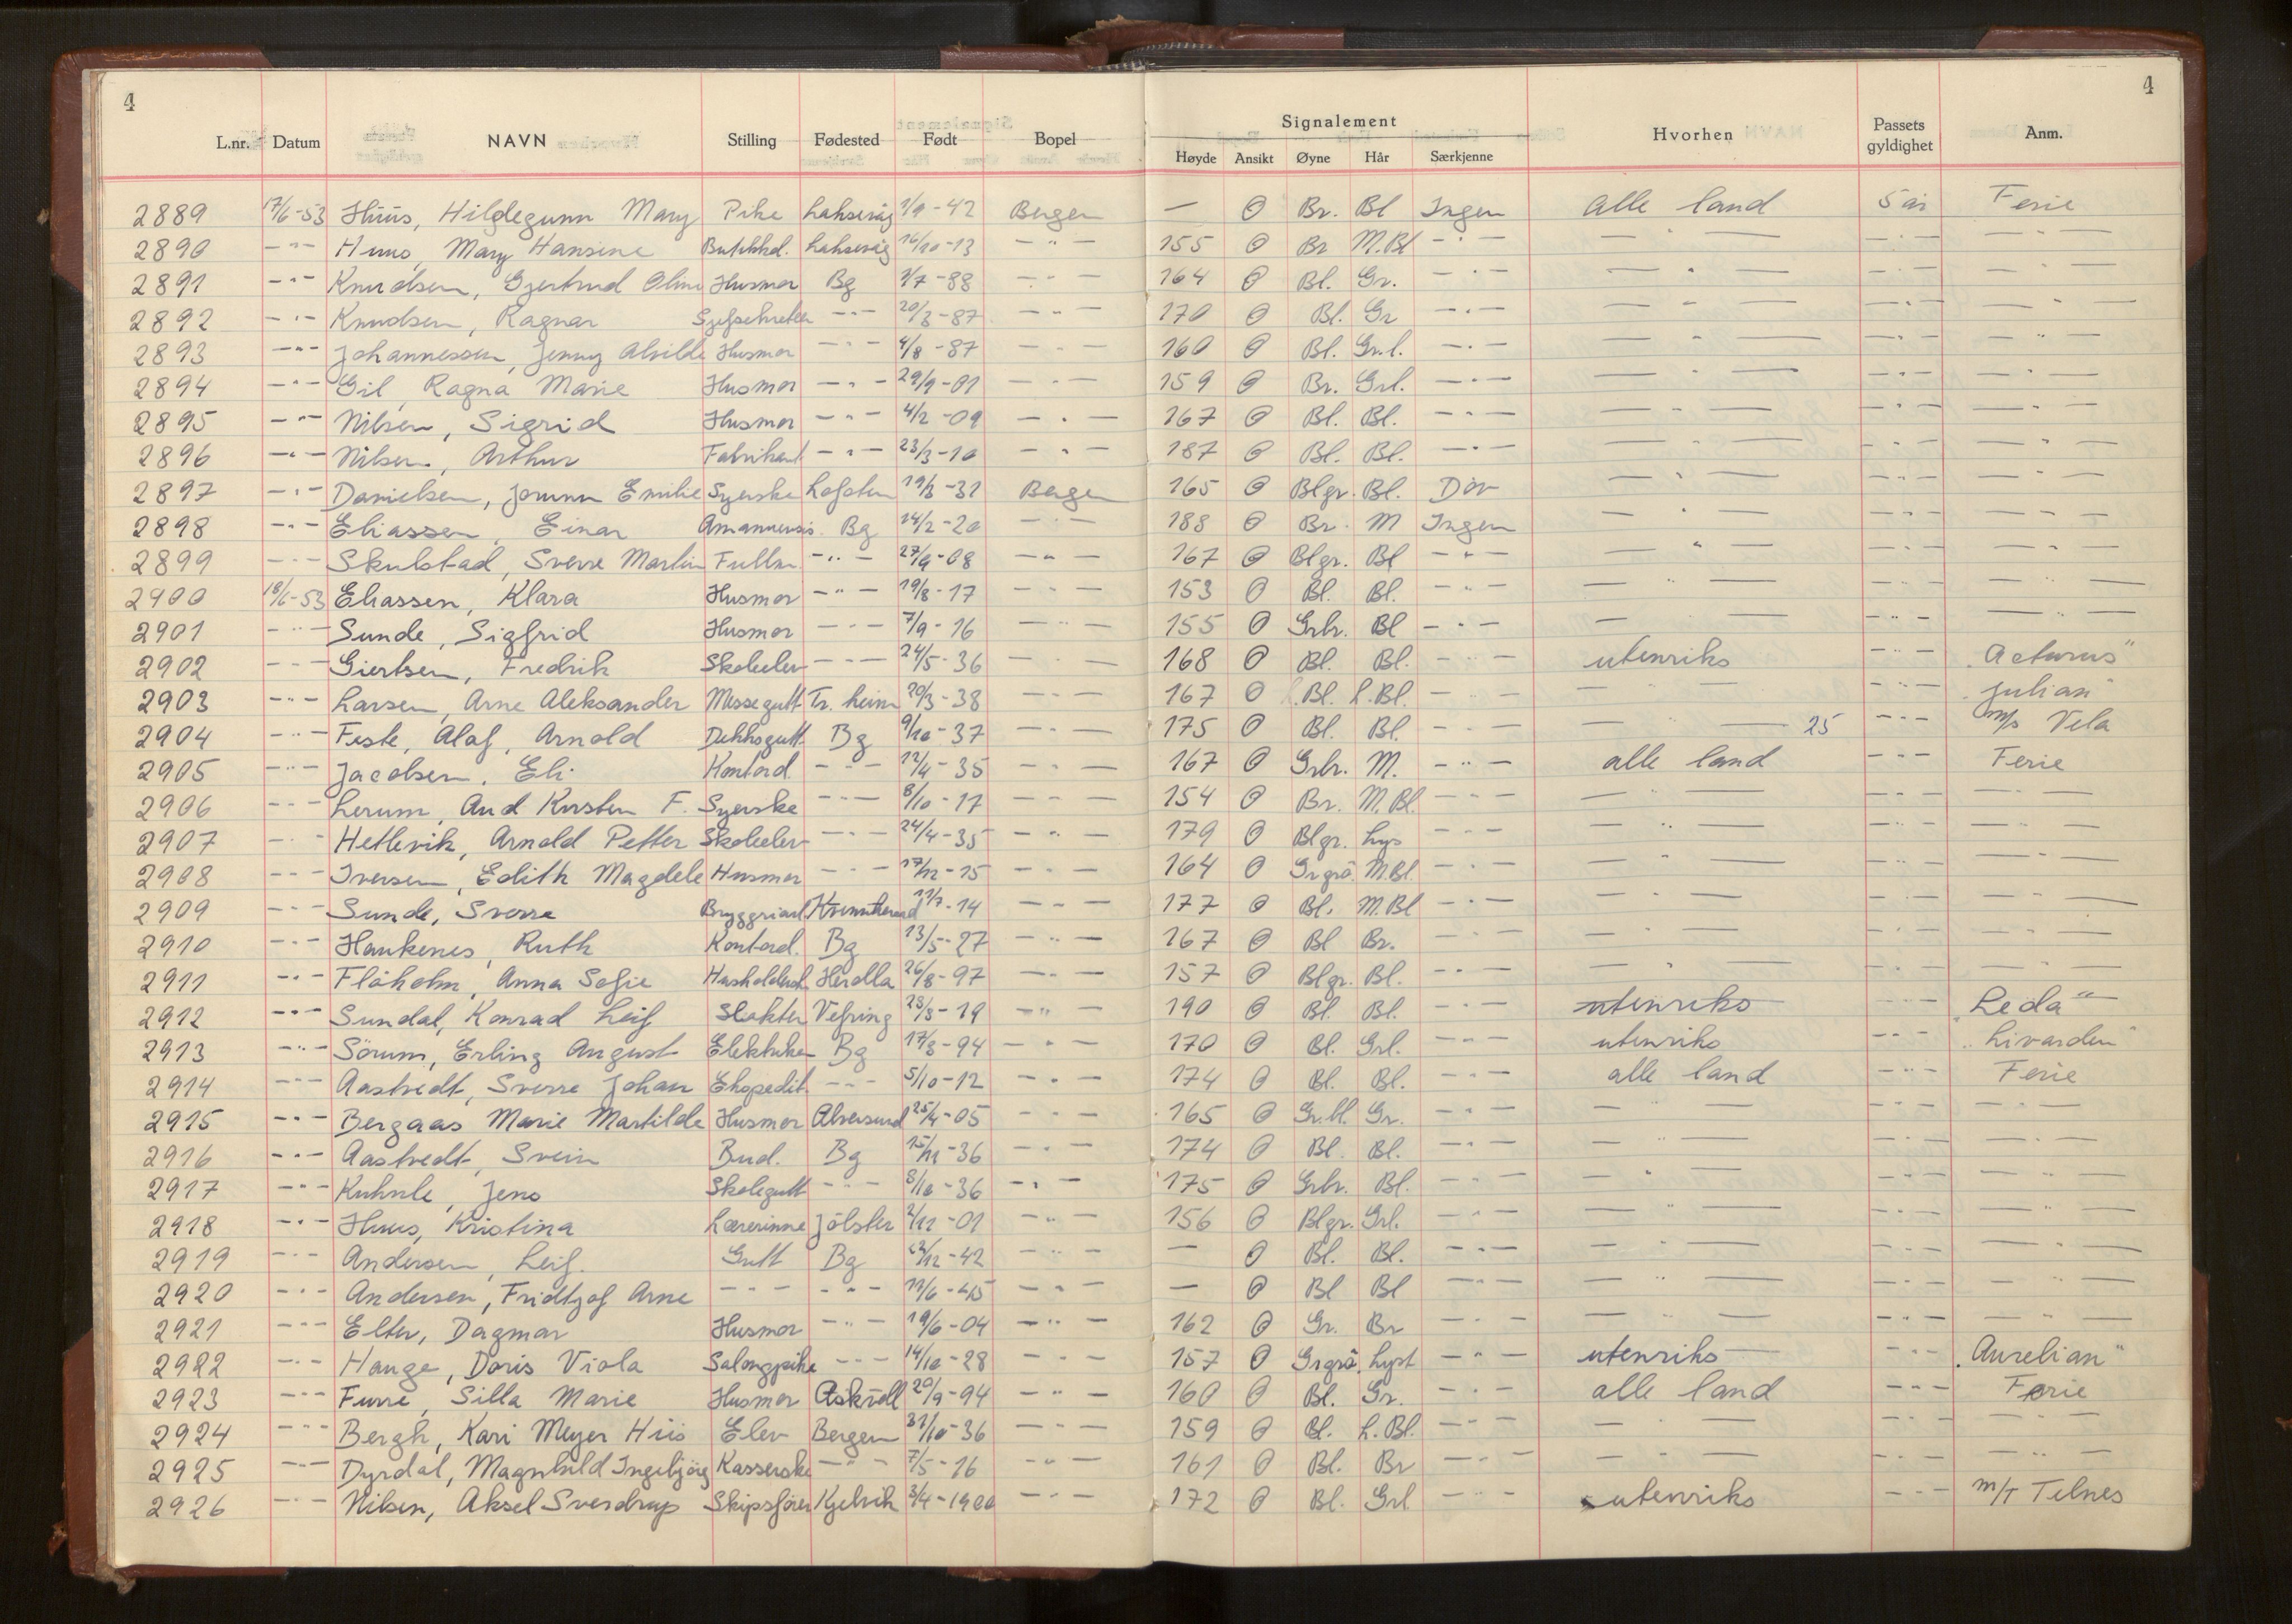 4
4
L.nr. Datum NAVN Stilling Fødested Født Bopel Signalement Høyde Ansikt Øyne Hår Særkjenne Hvorhen Passets gyldighet Anm.
2889 17/6-53 Hüüs, Hildegunn Mary Pike Laksevåg 1/9-42 Bergen — O Br. Bl Ingen alle land 5 år Ferie
2890 -"- Huus, Mary Hansine Butikkd. Laksevåg 16/10-13 -"- 155 O Br M.Bl -"- -"- -"- -"-
2891 -"- Knudsen, Gjertrud Husmor Bg 2/7-88 -"- 164 O Bl. Gr. -"- -"- -"- -"-
2892 -"- Knudsen, Ragnar -"- 20/3-87 -"- 170 O Bl. Gr -"- -"- -"- -"-
2893 -"- Johannessen, Jenny Alvilde Husmor -"- 4/8-87 -"- 160 O Bl. Gr.l. -"- -"- -"- -"-
2894 -"- Gil, Ragna Marie Husmor -"- 29/9-01 -"- 159 O Br. Grl. -"- -"- -"- -"-
2895 -"- Nilsen, Sigrid Husmor -"- 4/2-09 -"- 167 O Bl. Bl. -"- -"- -"- -"-
2896 -"- Nilsen, Arthur Fabrikant -"- 23/3-10 -"- 187 O Bl. Bl. -"- -"- -"- -"-
2897 -"- Danielsen, Jorunn Emilie Syerske Lofoten 19/3-31 Bergen 165 O Blgr. Bl. Döv -"- -"- -"-
2898 -"- Eliassen, Einar Amanuensis Bg 14/2-20 -"- 188 O Br. M Ingen -"- -"- -"-
2899 -"- Skulstad, Sverre Martin Fullm. -"- 27/9-08 -"- 167 O Blgr. Bl -"- -"- -"- -"-
2900 18/6-53 Eliassen, Klara Husmor -"- 19/8-17 -"- 153 O Bl. Bl. -"- -"- -"- -"-
2901 -"- Sunde, Sigfrid Husmor -"- 7/9-16 -"- 155 O Grbr. Bl -"- -"- -"- -"-
2902 -"- Giertsen, Fredrik Skoleelev -"- 24/5-36 -"- 168 O Bl. Bl. -"- utenriks -"- "Acturus"
2903 -"- Larsen, Arne Aleksander Messegutt Tr.heim 20/3-38 -"- 167 O L.Bl. L.Bl. -"- -"- -"- "Julian"
2904 -"- Feste, Olaf, Arnold Dekksgutt Bg 9/10-37 -"- 175 O Bl. Bl. -"- -"- 25 -"- m/s Vela
2905 -"- Jacobsen, Eli Kontord. -"- 12/4-35 -"- 167 O Grbr. M. -"- alle land -"- Ferie
2906 -"- Lerum, Aud Kirsten F. Syerske -"- 8/10-17 -"- 154 O Br. M.Bl. -"- -"- -"- -"-
2907 -"- Hetlevik, Arnold Petter Skoleelev -"- 24/4-35 -"- 179 O Blgr. Lys -"- -"- -"- -"-
2908 -"- Iversen, Edith Magdele Husmor -"- 17/12-15 -"- 164 O Grgrö. M.Bl. -"- -"- -"- -"-
2909 -"- Sunde, Sverre 11/7-14 -"- 177 O Bl. M.Bl -"- -"- -"- -"-
2910 -"- Haukenes, Ruth Kontord. Bg 13/5-27 -"- 167 O Bl Br. -"- -"- -"- -"-
2911 -"- Flåholm, Anna Sofie Herdla 26/8-97 -"- 157 O Blgr. Bl. -"- -"- -"- -"-
2912 -"- Sundal, Konrad Leif Slakter Vefring 23/8-19 -"- 190 O Bl. Bl. -"- utenriks -"- "Leda"
2913 -"- Sörum, Erling August Elektriker Bg 17/3-94 -"- 170 O Bl. Grl. -"- utenriks -"- "Livarden"
2914 -"- Aastvedt, Sverre Johan Ekspedit. -"- 5/10-12 -"- 174 O Bl. Bl. -"- alle land -"- Ferie
2915 -"- Bergaas Marie Martilde Husmor Alversund 25/4-05 -"- 165 O Gr.bl. Gr. -"- -"- -"- -"-
2916 -"- Aastvedt, Svein Bud. Bg 15/11-36 -"- 174 O Bl. Bl. -"- -"- -"- -"-
2917 -"- Kuhnle, Jens Skolegutt -"- 8/10-36 -"- 175 O Grbr. Bl. -"- -"- -"- -"-
2918 -"- Huus, Kristina Lærerinne Jölster 2/12-01 -"- 156 O Blgr. Grl. -"- -"- -"- -"-
2919 -"- Andersen, Leif. Gutt Bg -"- — O Bl. Bl. -"- -"- -"- -"-
2920 -"- Andersen, Fridtjof Arne -"- -"- 11/6-45 -"- — O Bl Bl -"- -"- -"- -"-
2921 -"- Elter, Dagmar Husmor -"- 19/6-04 -"- 162 O Gr. Br -"- -"- -"- -"-
2922 -"- Hauge, Doris Viola Salongpike -"- 14/10-28 -"- 157 O Grgrö. Lyst -"- utenriks -"- "Aurelian"
2923 -"- Furre, Silla Marie Husmor Askvoll 20/9-94 -"- 160 O Bl. Gr. -"- alle land -"- Ferie
2924 -"- Bergh, Kari Meyer Hiis Elev Bergen 31/10-36 -"- 159 O Bl. L.Bl. -"- -"- -"- -"-
2925 -"- Dyrdal, Magnhild Ingebjörg Kasserske -"- 7/5-16 -"- 161 O Bl. Br -"- -"- -"- -"-
2926 -"- Nilsen, Aksel Sverdrup Skipsfører Kjelvik 3/4-1900 -"- 172 O Bl. Grl -"- utenriks -"- m/T Telnes